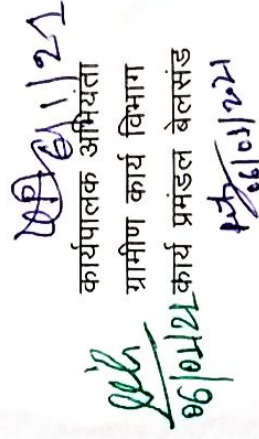 6/1/21
कार्यपालक अभियंता
ग्रामीण कार्य विभाग
कार्य प्रमंडल बेलसंड
06/01/21
06/01/2021